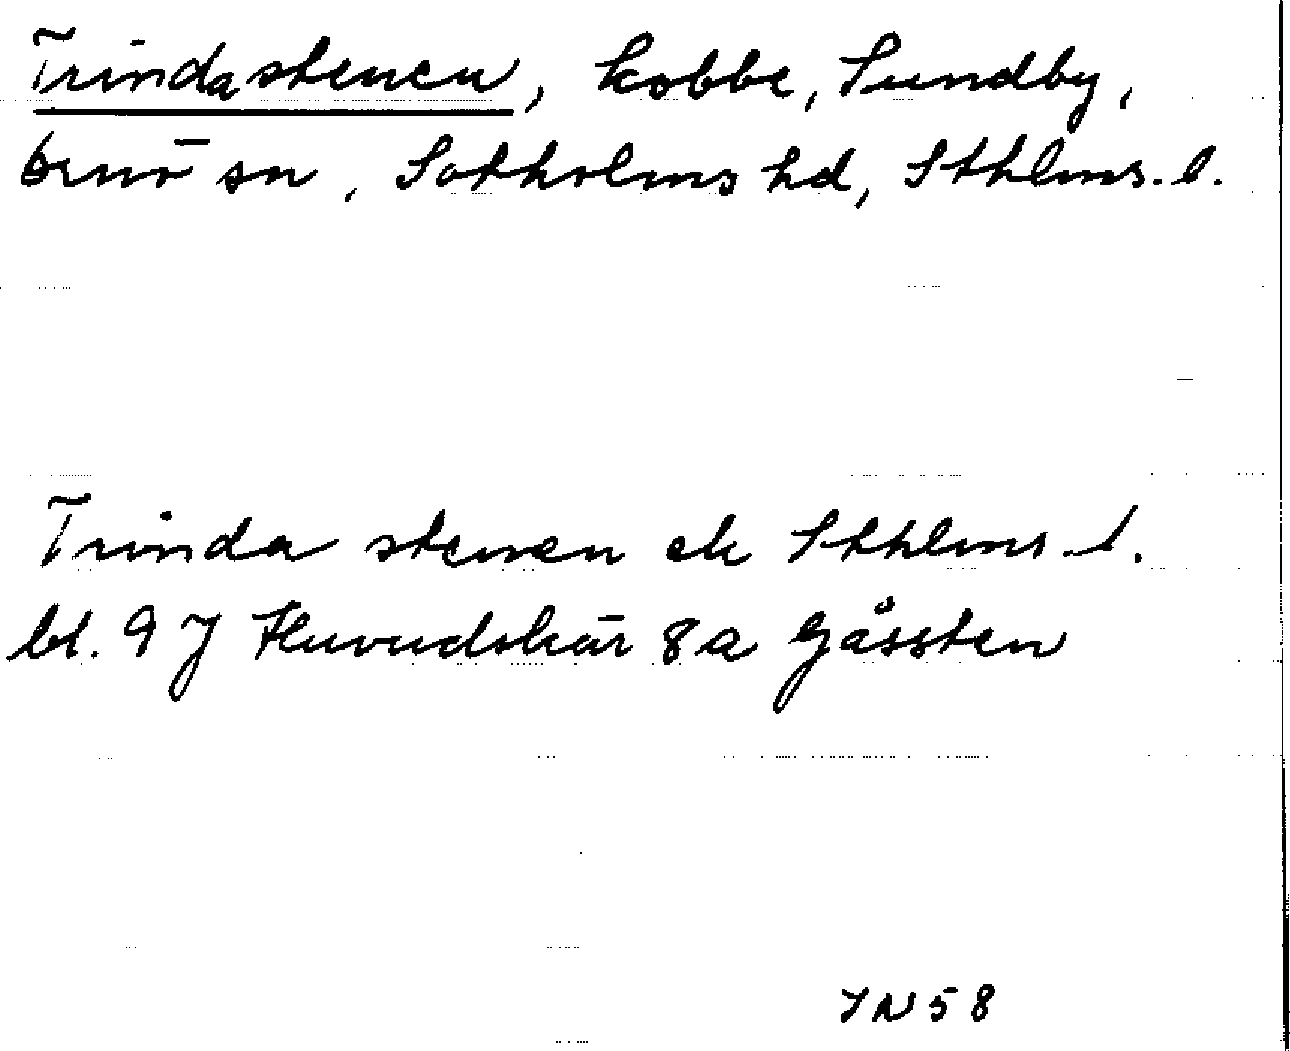 Trindastenen, kobbe, Sundby,
Ornö sn, Sotholms hd, Sthlms. l.
Trinda stenen ek Sthlms. l.
bl. 9 J Huvudskär 8a Gåssten
IN 58